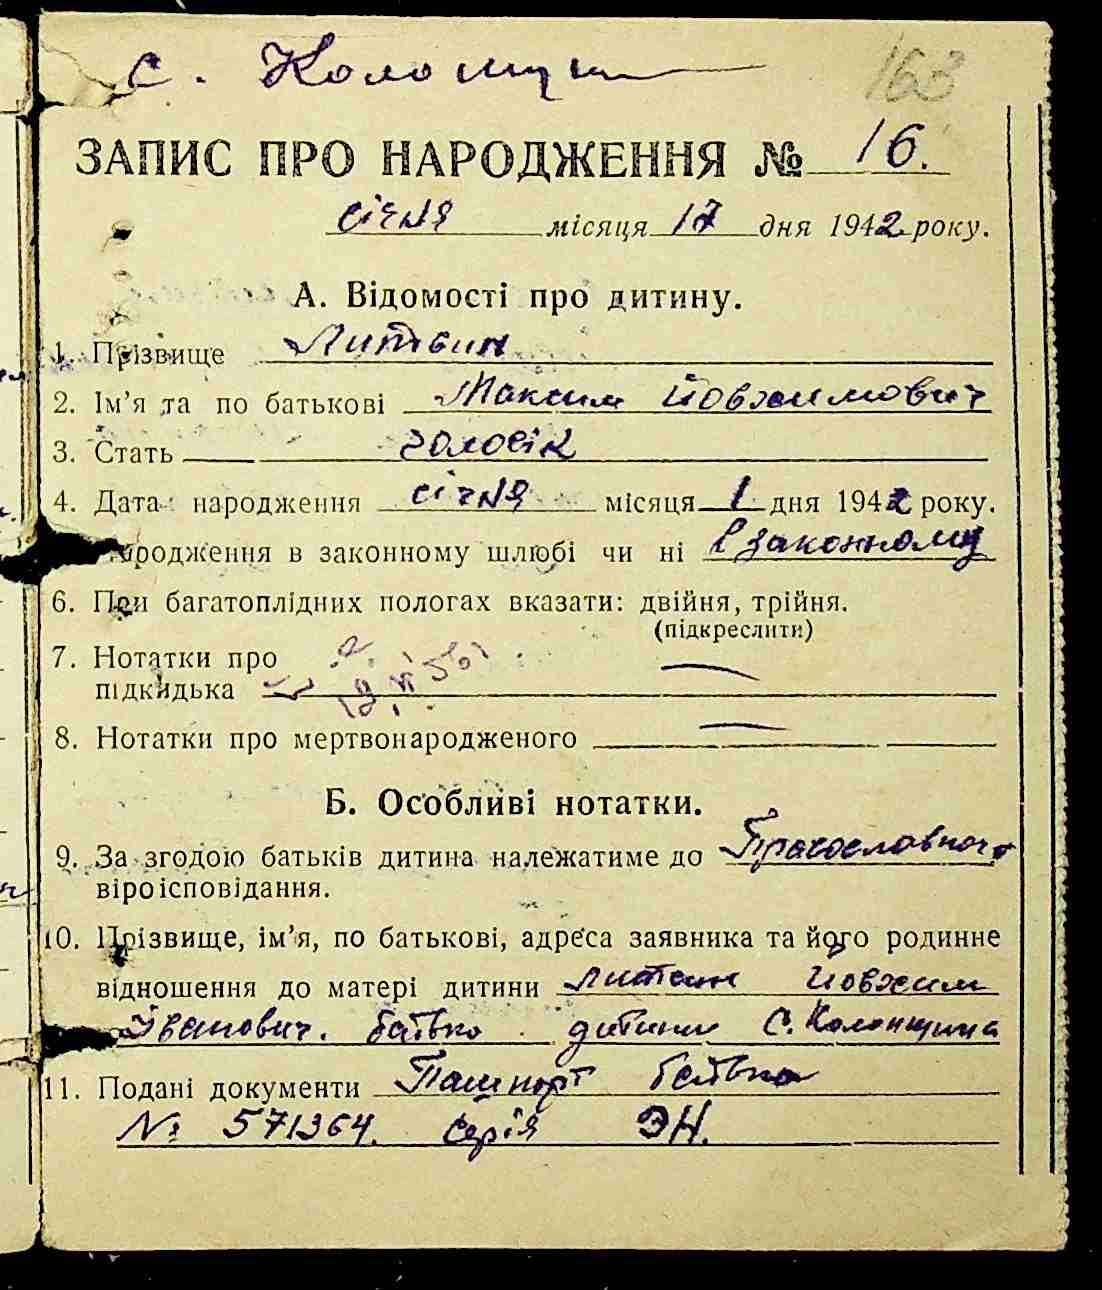 с. Колонщин
163
ЗАПИС ПРО НАРОДЖЕННЯ № 16.
січня місяця 17 дня 1942 року.
А. Відомості про дитину.
1. Прізвище Литвин
2. Ім'я та по батькові Максим Йовхимович
3. Стать чоловік
4. Дата народження січня місяця 1 дня 1942 року.
ародження в законному шлюбі чи ні в законному
6. При багатоплідних пологах вказати: двійня, трійня.
(підкреслити)
7. Нотатки про
підкидька —
8. Нотатки про мертвонародженого —
Б. Особливі нотатки.
9. За згодою батьків дитина належатиме до Православного
віроісповідання.
10. Прізвище, ім'я, по батькові, адреса заявника та його родинне
відношення до матері дитини Литвин Йовхим
Іванович. батько дитини С. Колонщина
11. Подані документи Пашпорт батька
№ 571364. серія ЭН.